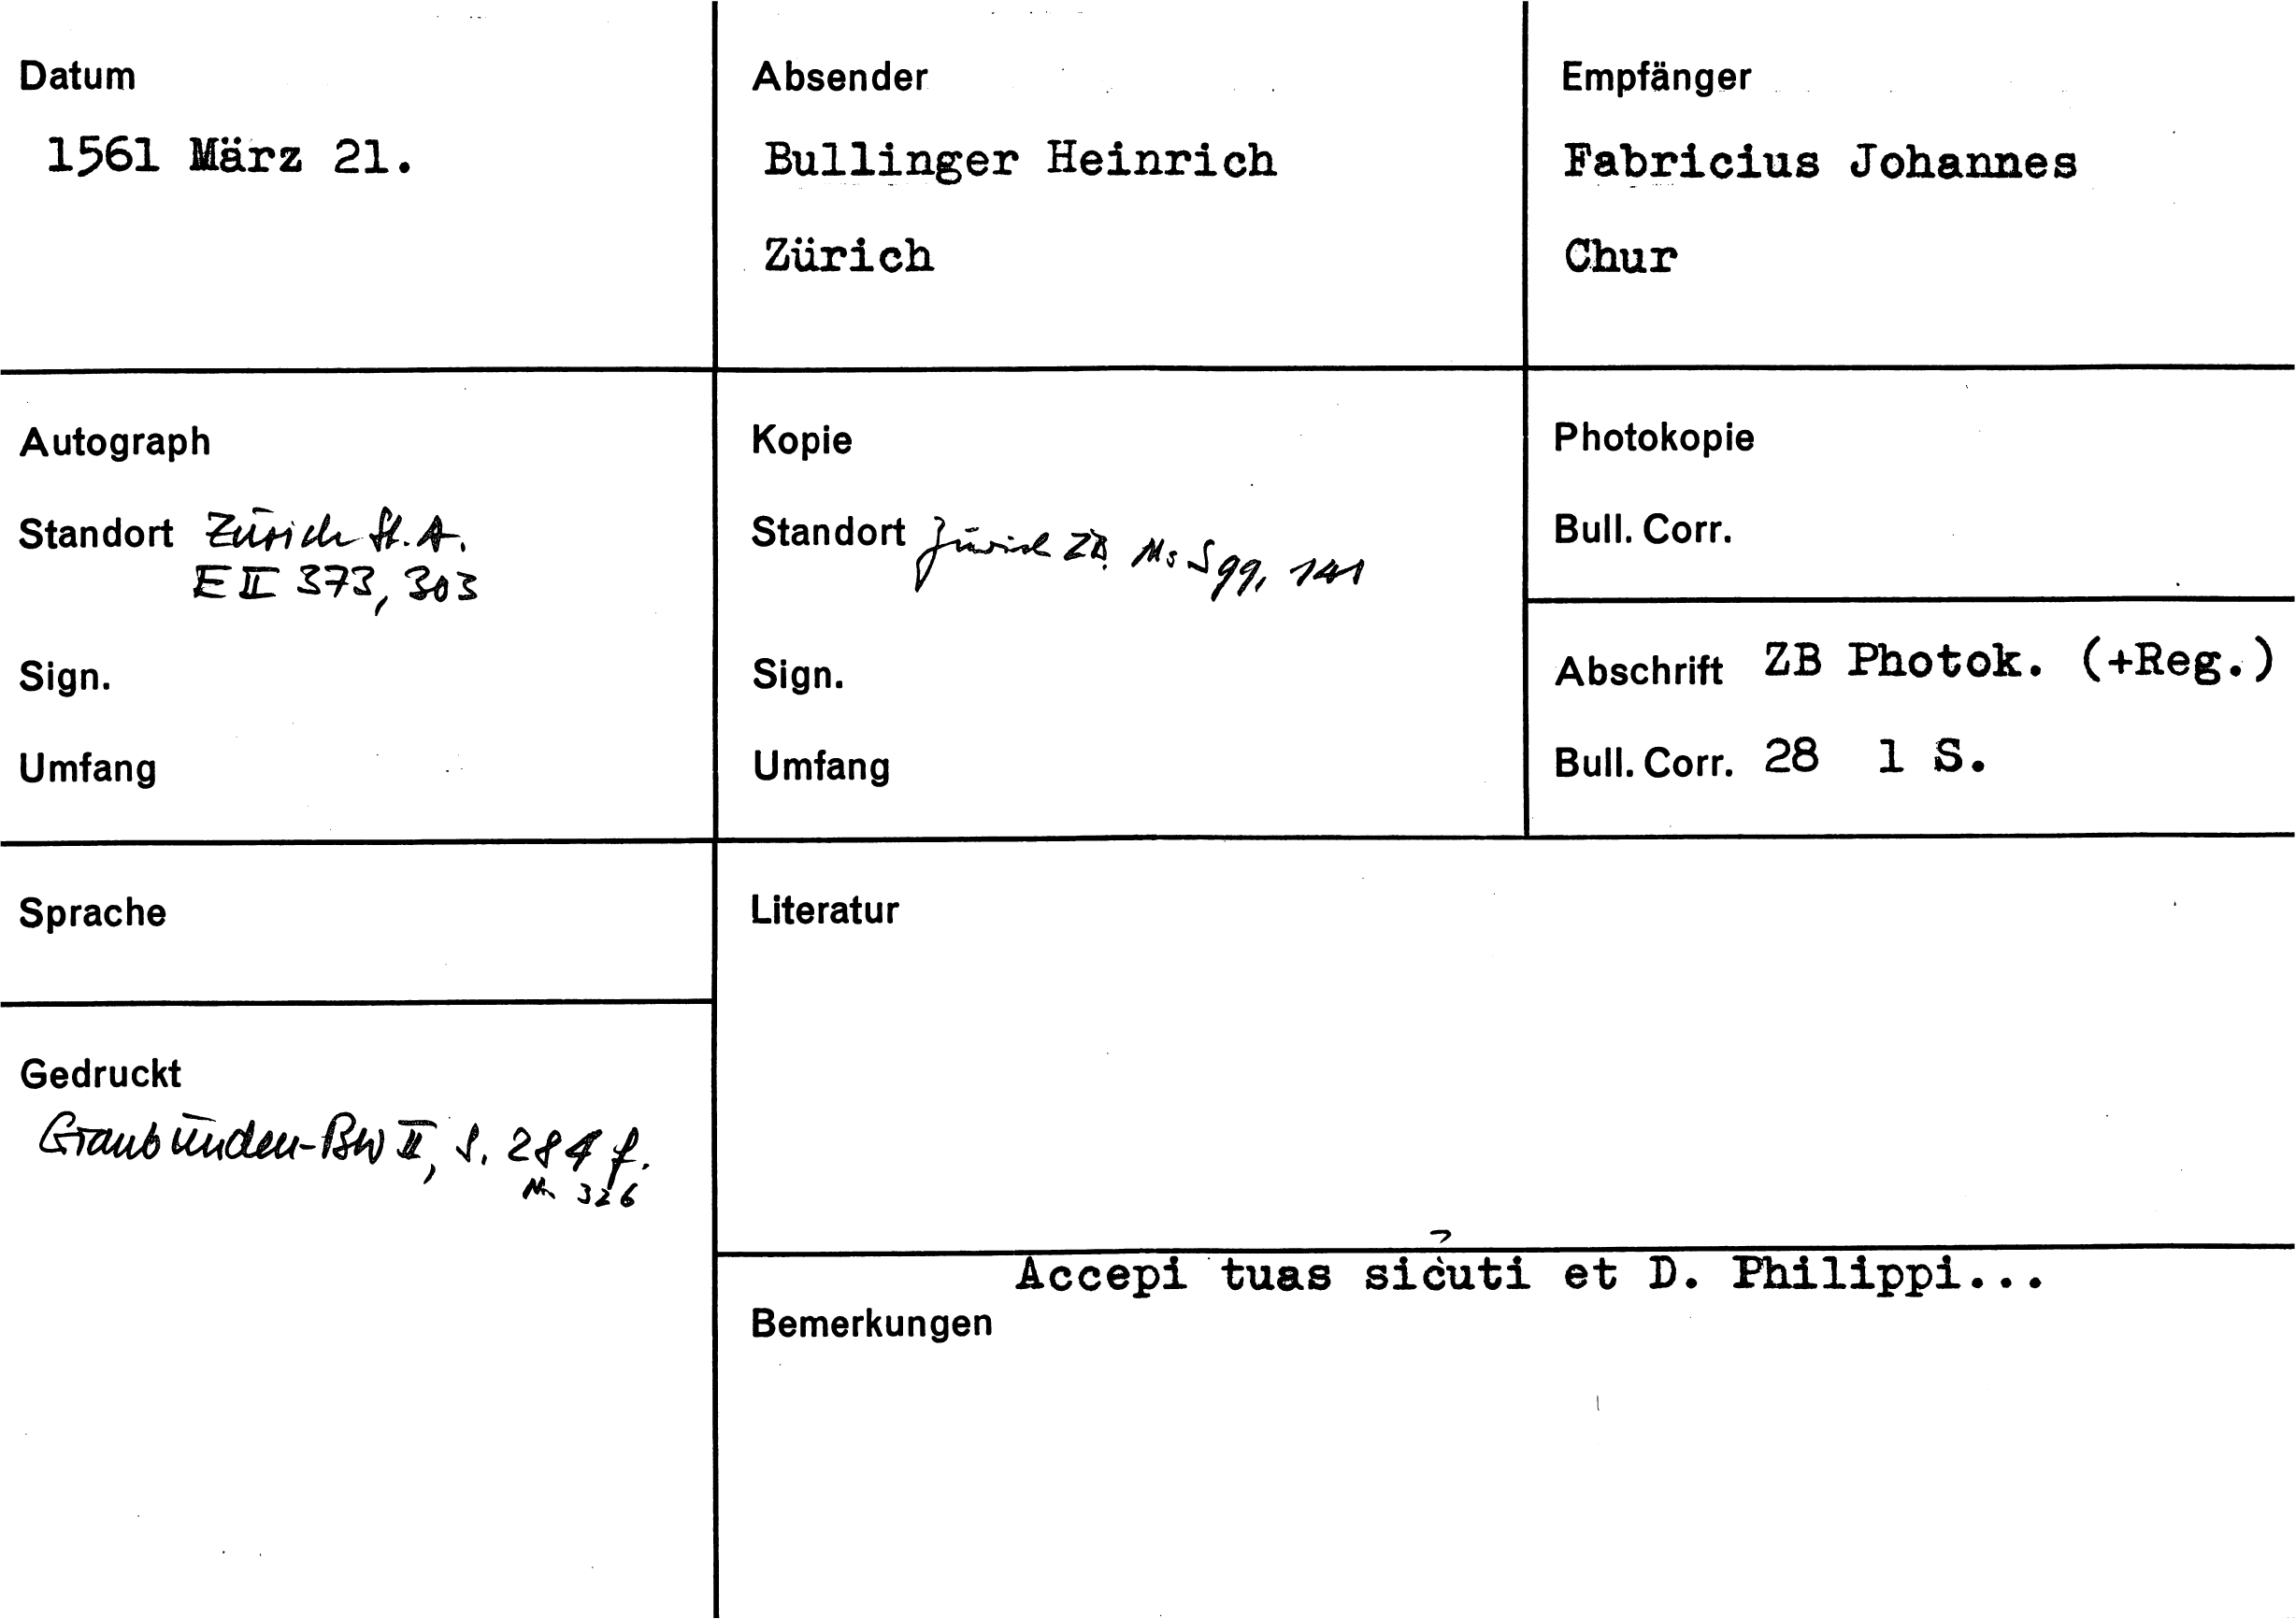 Datum
1561 März 21.
Absender
Bullinger Heinrich
Zürich
Empfänger
Fabricius Johannes
Chur
Autograph
Standort Zürich St. A.
E II 373, 303
Sign.
Umfang
Kopie
Standort Zürich ZB Ms S 99, 141
Sign.
Umfang
Photokopie
Bull. Corr.
Abschrift ZB Photok. (+Reg.)
Bull. Corr. 28 1 S.
Sprache
Gedruckt
Graubünden-BW II, S. 284 f.
Nr 326
Literatur
Accepi tuas sicuti et D. Philippi...
Bemerkungen